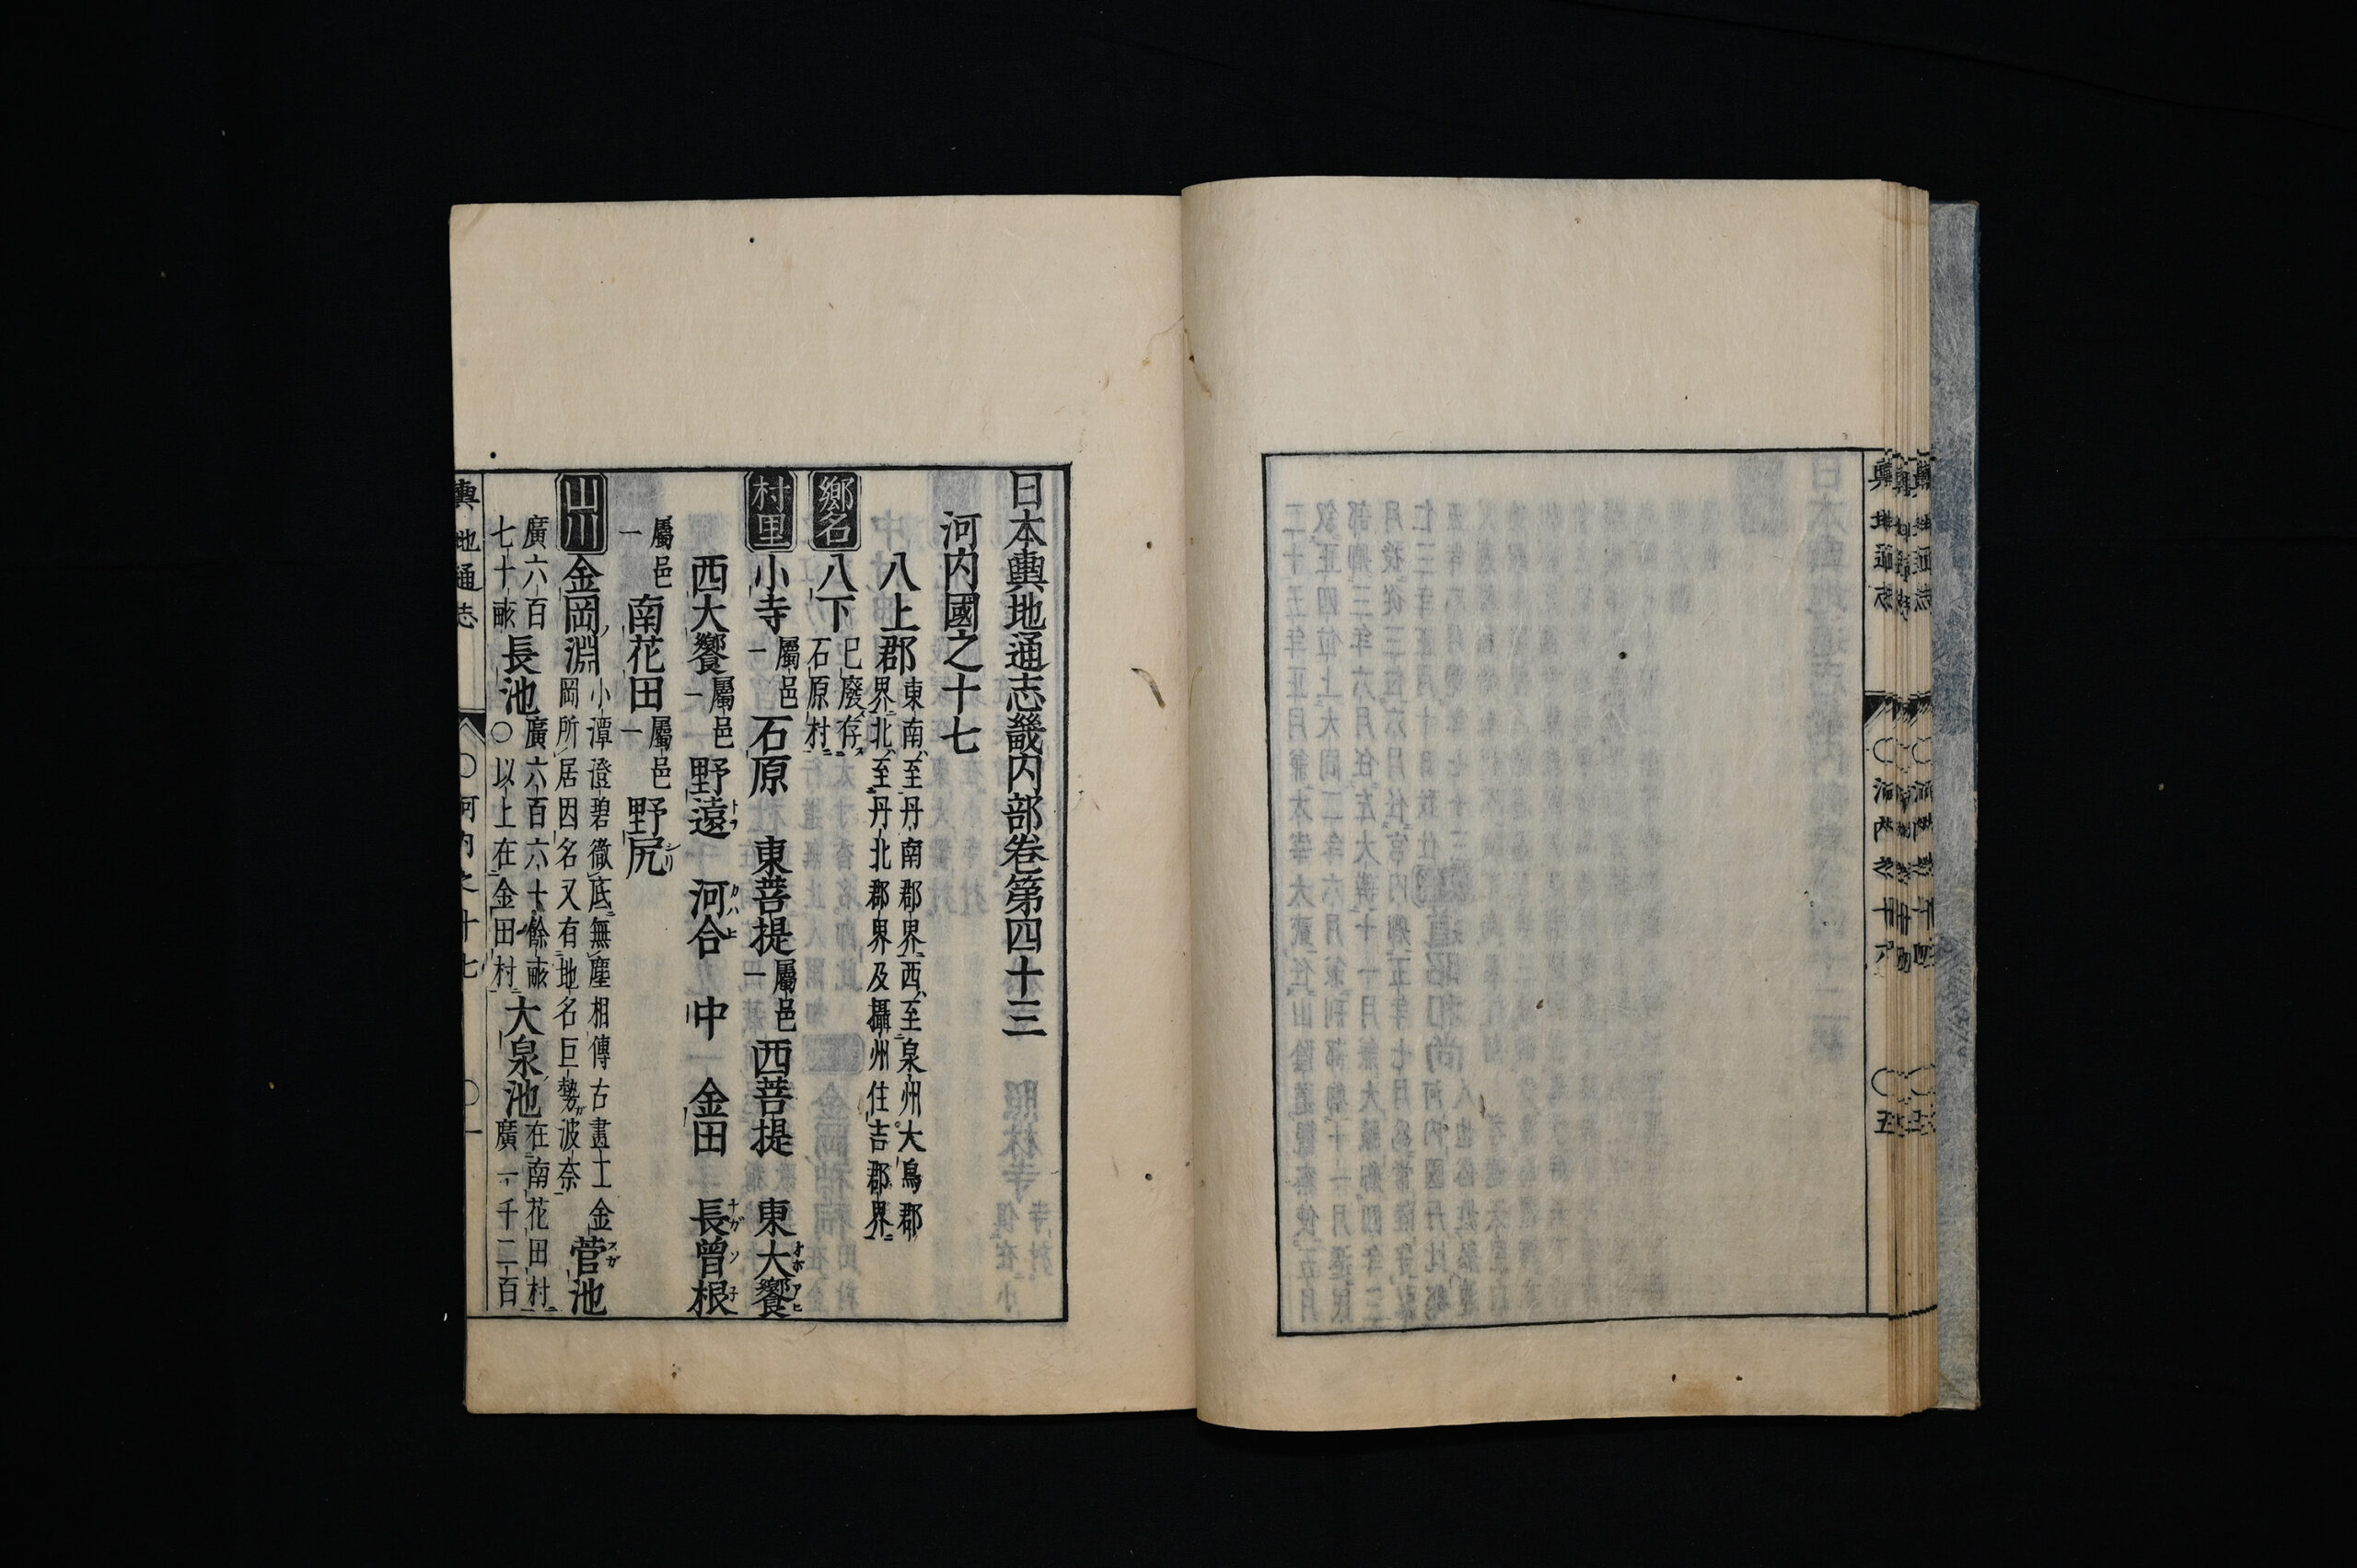 日本輿地通志畿内部巻第四十三
河内國之十七
八上郡 東南ハ至丹南郡界西ハ至泉州大鳥郡界北ハ至丹北郡界及攝州住吉郡界
鄉名 八下 已廢存石原村
村里 小寺 屬邑一 石原 東菩提 屬邑一 西菩提 東大饗
西大饗 屬邑一 野遠 河合 中 金田 長曾根
屬邑一 南花田 屬邑一 野尻
山川 金岡淵 小潭澄碧徹底無塵相傳古畫工金岡所居因名又有地名巨勢波奈 菅池
廣六百七十畝 長池 廣六百六十餘畝○以上在金田村 大泉池 在南花田村廣一千二百
輿地通志 ○河内之十七 ○一
輿地通志 ○河内之十六 ○五